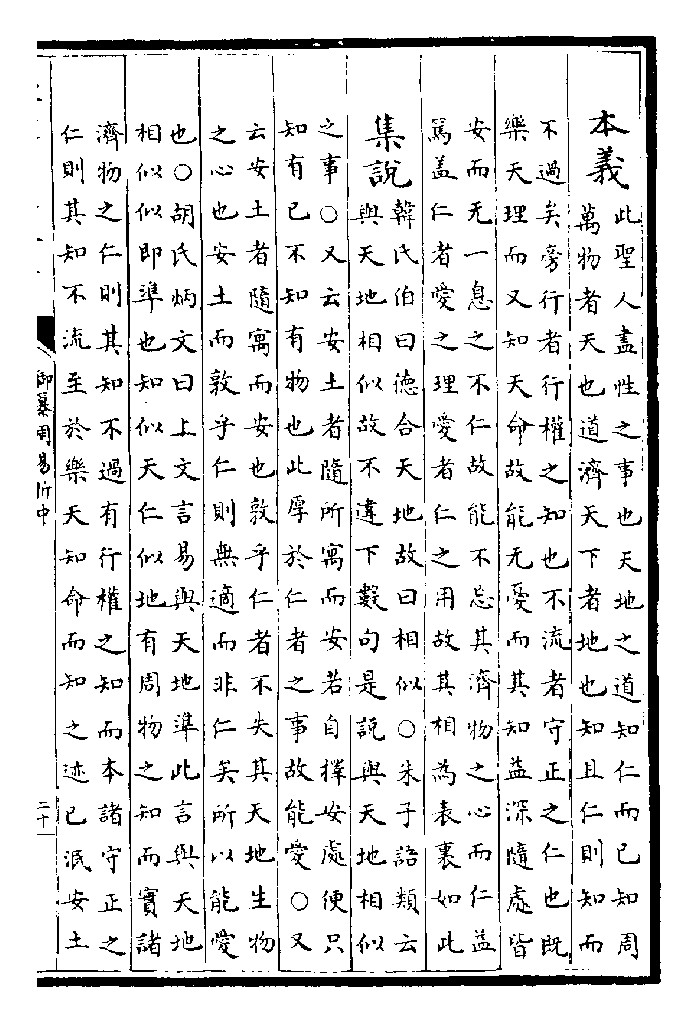 本義此聖人盡性之事也天地之道知仁而已知周
萬物者天也道濟天下者地也知且仁則知而
不過矣旁行者行權之知也不流者守正之仁也既
樂天理而又知天命故能无憂而其知益深隨處皆
安而无一息之不仁故能不忘其濟物之心而仁益
篤蓋仁者愛之理愛者仁之用故其相為表裏如此
集說韓氏伯曰德合天地故曰相似○朱子語類云
與天地相似故不違下數句是說與天地相似
之事○又云安土者隨所寓而安若自擇安處便只
知有已不知有物也此厚於仁者之事故能愛○又
云安土者隨寓而安也敦乎仁者不失其天地生物
之心也安土而敦乎仁則無適而非仁矣所以能愛
也○胡氏炳文曰上文言易與天地準此言與天地
相似似即準也知似天仁似地有周物之知而實諸
濟物之仁則其知不過有行權之知而本諸守正之
仁則其知不流至於樂天知命而知之迹已泯安土
御纂周易折中
二十